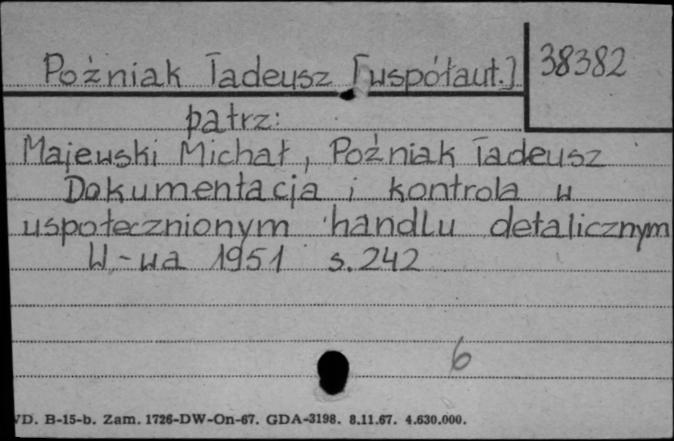 Poźniak Tadeusz [współaut.] 38382
patrz:
Majewski Michał, Poźniak Tadeusz
Dokumentacja i kontrola w
uspołecznionym handlu detalicznym
W-wa 1951 s. 242
6
WD. B-15-b. Zam. 1726-DW-On-67. GDA-3198. 8.11.67. 4.630.000.